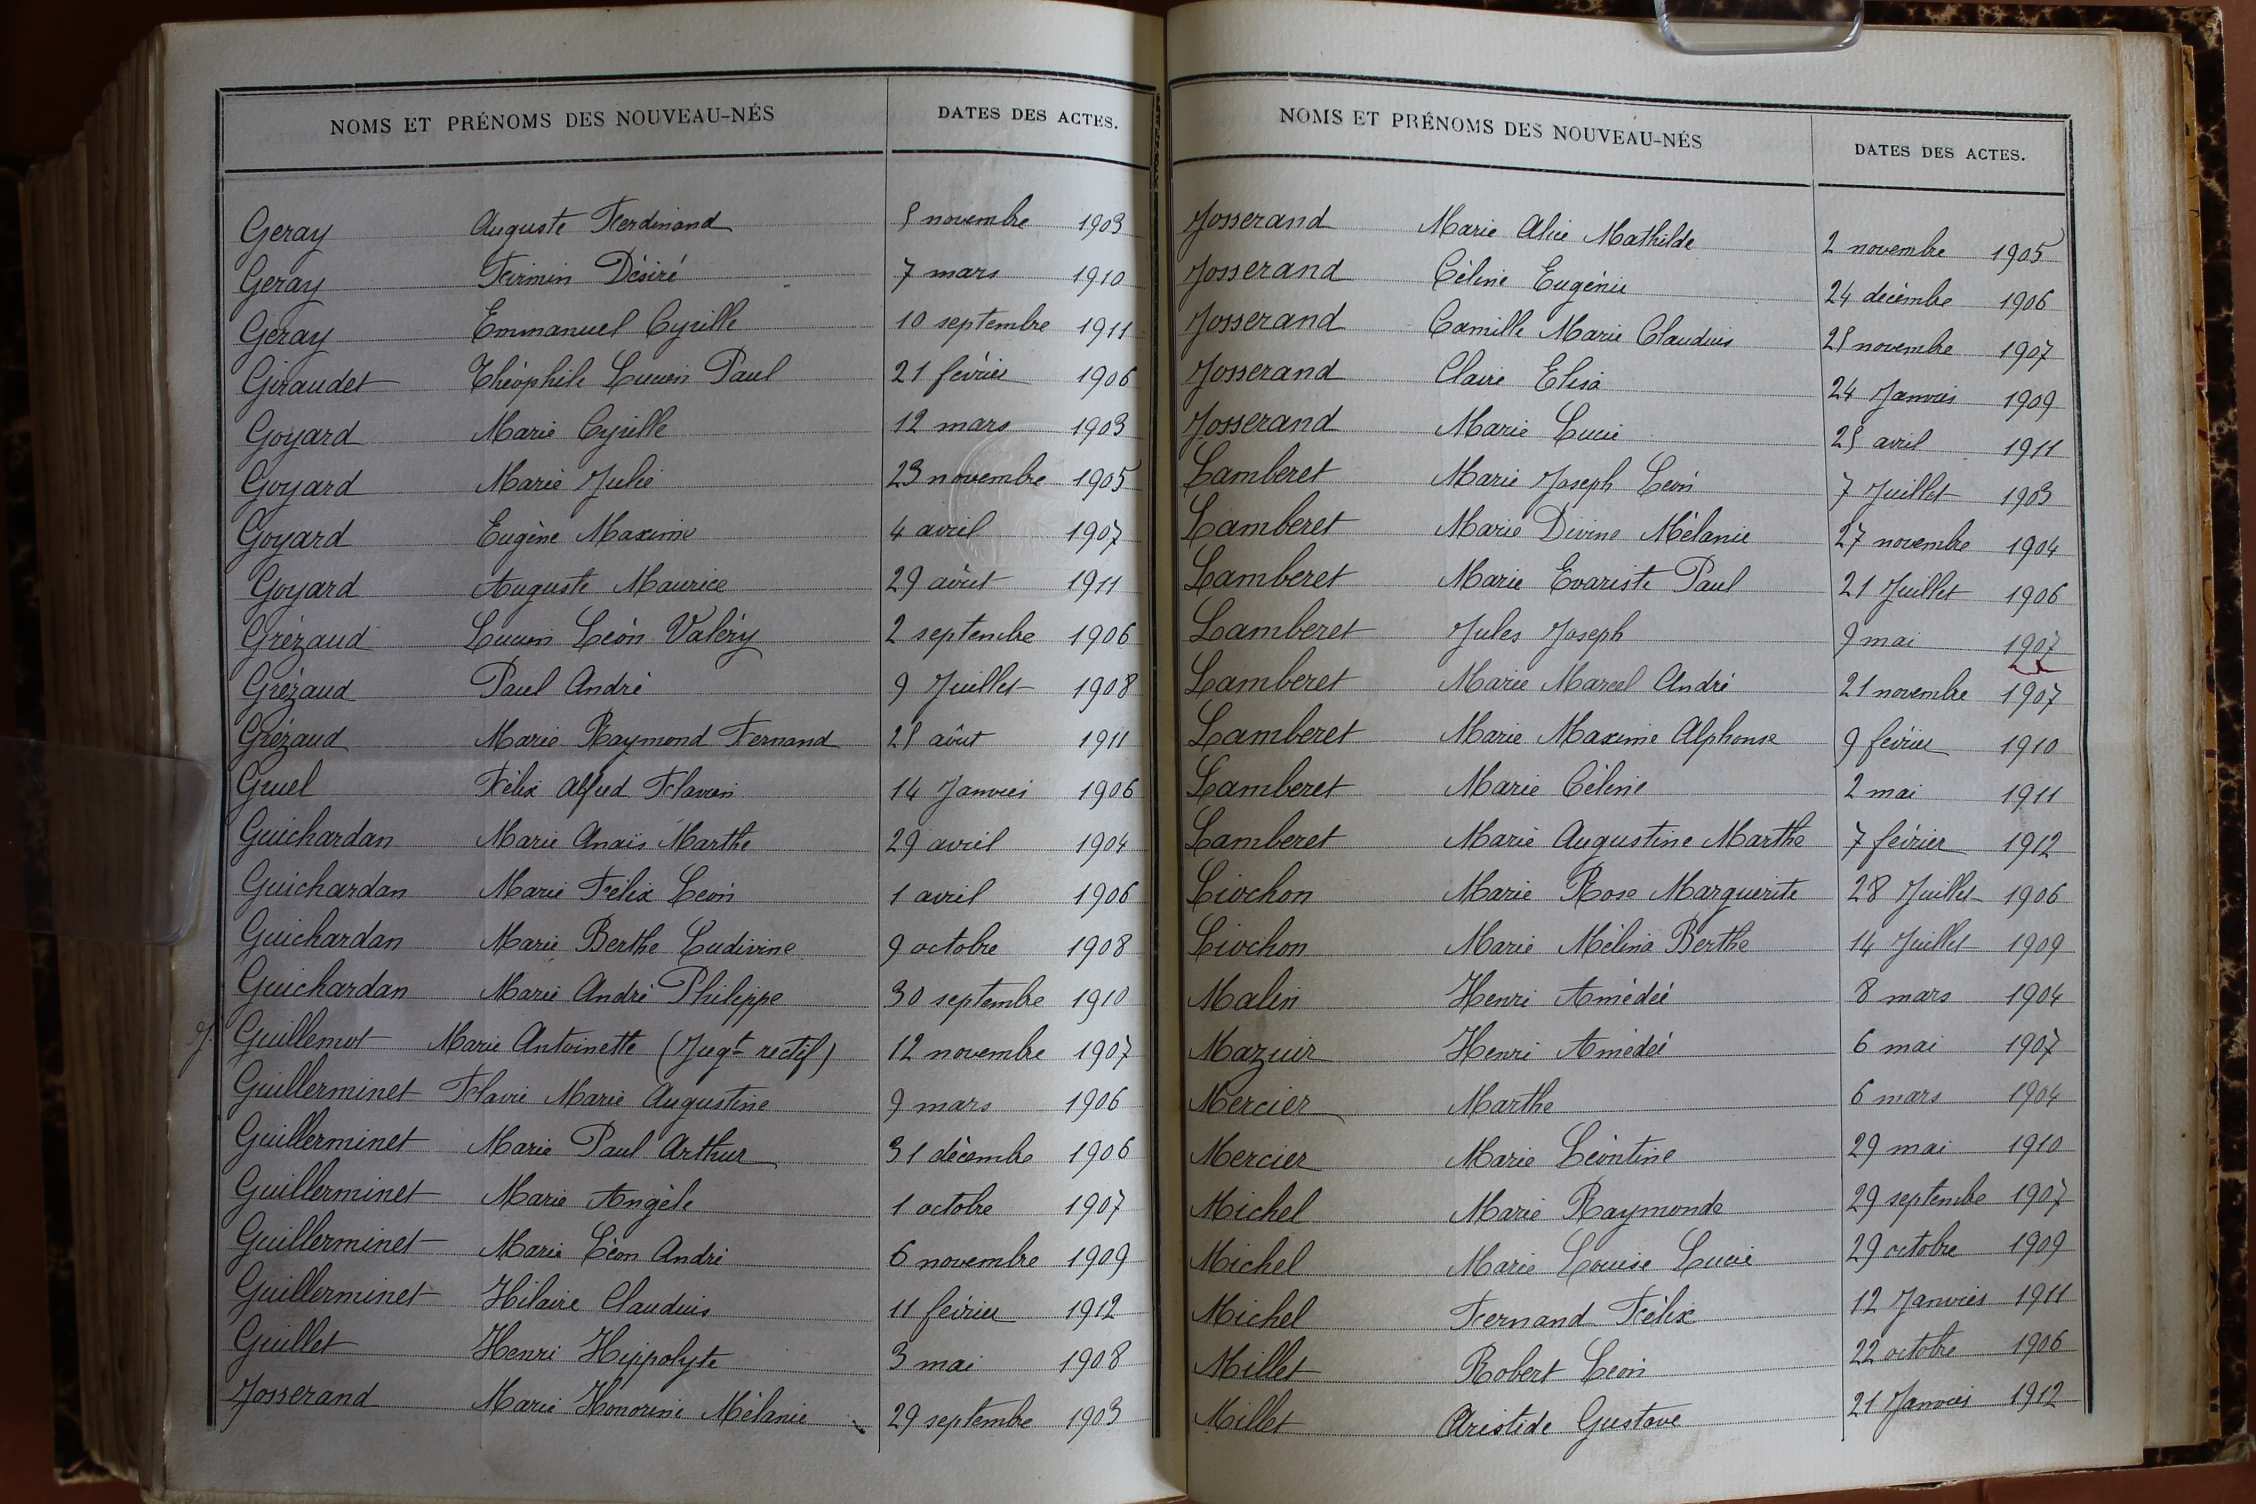 NOMS ET PRÉNOMS DES NOUVEAU-NÉS DATES DES ACTES.
Geray Auguste Ferdinand 5 novembre 1903
Geray Firmin Désiré 7 mars 1910
Geray Emmanuel Cyrille 10 septembre 1911
Giraudet Théophile Lucien Paul 21 février 1906
Goyard Marie Cyrille 12 mars 1903
Goyard Marie Julie 23 novembre 1905
Goyard Eugène Maxime 4 avril 1907
Goyard Auguste Maurice 29 août 1911
Grézaud Lucien Léon Valéry 2 septembre 1906
Grézaud Paul André 9 Juillet 1908
Grézaud Marie Raymond Fernand 25 août 1911
Gruel Félix Alfred Flavien 14 Janvier 1906
Guichardan Marie Anaïs Marthe 29 avril 1904
Guichardan Marie Félix Léon 1 avril 1906
Guichardan Marie Berthe Ludivine 9 octobre 1908
Guichardan Marie André Philippe 30 septembre 1910
Guillemot Marie Antoinette (Jugt rectif) 12 novembre 1907
Guillerminet Flavie Marie Augustine 9 mars 1906
Guillerminet Marie Paul Arthur 31 décembre 1906
Guillerminet Marie Angèle 1 octobre 1907
Guillerminet Marie Léon André 6 novembre 1909
Guillerminet Hilaire Claudius 11 février 1912
Guillet Henri Hippolyte 3 mai 1908
Josserand Marie Honorine Mélanie 29 septembre 1903
NOMS ET PRÉNOMS DES NOUVEAU-NÉS DATES DES ACTES.
Josserand Marie Alice Mathilde 2 novembre 1905
Josserand Céline Eugénie 24 décembre 1906
Josserand Camille Marie Claudius 25 novembre 1907
Josserand Claire Elisa 24 Janvier 1909
Josserand Marie Lucie 25 avril 1911
Lamberet Marie Joseph Léon 7 Juillet 1903
Lamberet Marie Divine Mélanie 27 novembre 1904
Lamberet Marie Evariste Paul 21 Juillet 1906
Lamberet Jules Joseph 9 mai 1907
Lamberet Marie Marcel André 21 novembre 1907
Lamberet Marie Maxime Alphonse 9 février 1910
Lamberet Marie Céline 2 mai 1911
Lamberet Marie Augustine Marthe 7 février 1912
Livchon Marie Rose Marguerite 28 Juillet 1906
Livchon Marie Mélina Berthe 14 Juillet 1909
Malin Henri Amédée 8 mars 1904
Mazuir Henri Amédéé 6 mai 1907
Mercier Marthe 6 mars 1904
Mercier Marie Léontine 29 mai 1910
Michel Marie Raymonde 29 septembre 1907
Michel Marie Louise Lucie 29 octobre 1909
Michel Fernand Félix 12 Janvier 1911
Millet Robert Léon 22 octobre 1906
Millet Aristide Gustave 21 Janvier 1912